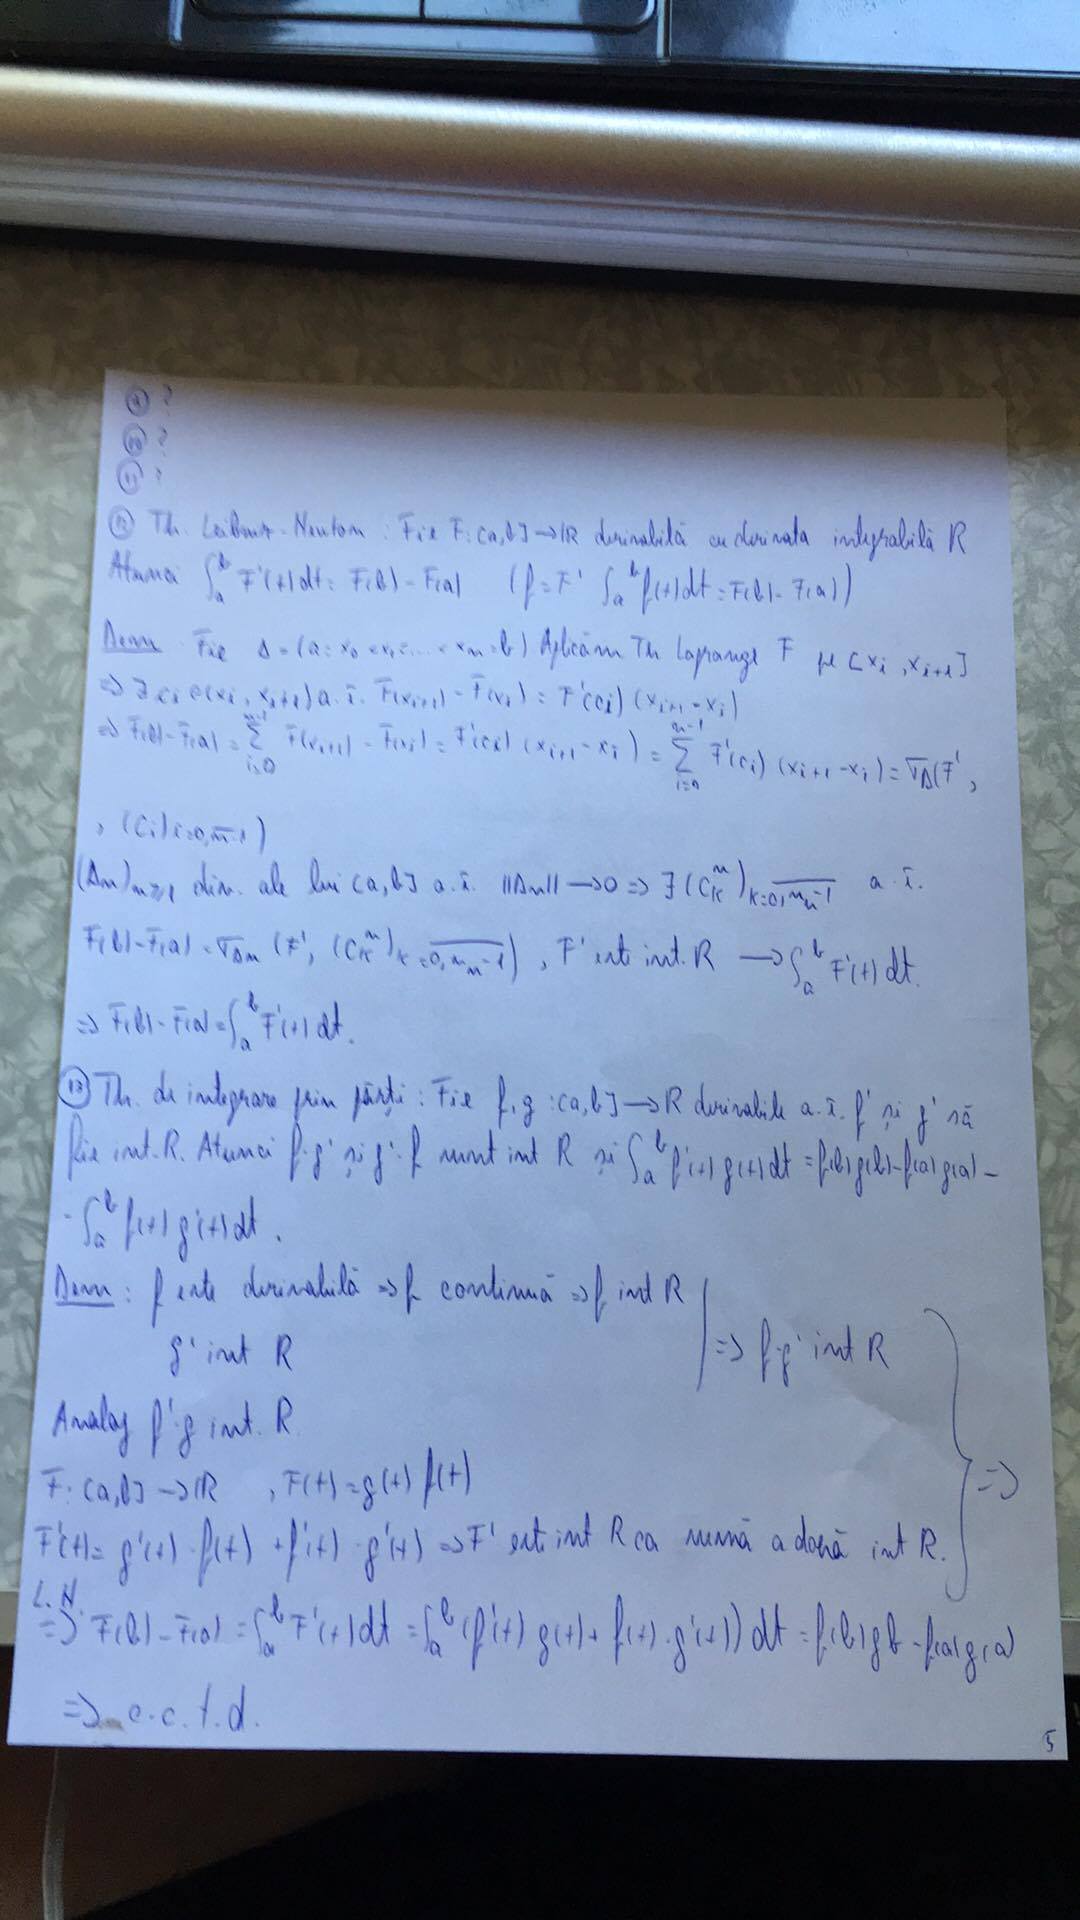 ⑨ ?
⑩ ?
⑪ ?
⑫ Th. Leibniz-Newton : Fie F:[a,b]→ℝ derivabilă cu derivata integrabilă R
Atunci ∫_a^b F'(t)dt = F(b) - F(a) (f=F' ∫_a^b f(t)dt = F(b) - F(a))
Dem Fie Δ=(a=x₀<x₁<...<x_n=b) Aplicăm Th Lagrange F pe [x_i, x_{i+1}]
=> ∃ c_i ∈(x_i, x_{i+1}) a.î. F(x_{i+1}) - F(x_i) = F'(c_i) (x_{i+1} - x_i)
=> F(b) - F(a) = ∑_{i=0}^{n-1} F(x_{i+1}) - F(x_i) = F'(c_i) (x_{i+1} - x_i) = ∑_{i=0}^{n-1} F'(c_i) (x_{i+1} - x_i) = σ_Δ(F',
, (c_i)i=0,n-1)
(Δn)_{n≥1} div. ale lui [a,b] a.î. ||Δn||→0 => ∃(C_k^n)_{k=0,m_n-1} a.î.
F(b) - F(a) = σ_Δn (F', (C_k^n)_{k=0,m_n-1}) , F' este int. R → ∫_a^b F'(t) dt.
=> F(b) - F(a) = ∫_a^b F'(t) dt.
⑬ Th. de integrare prin părți : Fie f,g :[a,b]→R derivabile a.î. f' și g' să
fie int. R. Atunci f·g' și g'·f sunt int R și ∫_a^b f'(t) g(t) dt = f(b)g(b) - f(a)g(a) -
- ∫_a^b f(t) g'(t) dt.
Dem : f este derivabilă => f continuă => f int R
g' int R | => f·g' int R
Analog f'·g int. R
F: [a,b]→ℝ , F(t) = g(t) f(t) } =>
F'(t) = g'(t) · f(t) + f'(t) · g'(t) => F' este int R ca sumă a două int R.
L.N.
=> F(b) - F(a) = ∫_a^b F'(t) dt = ∫_a^b (f'(t) g(t) + f(t)·g'(t)) dt = f(b)gb - f(a)g(a)
=> c.c.t.d.
5